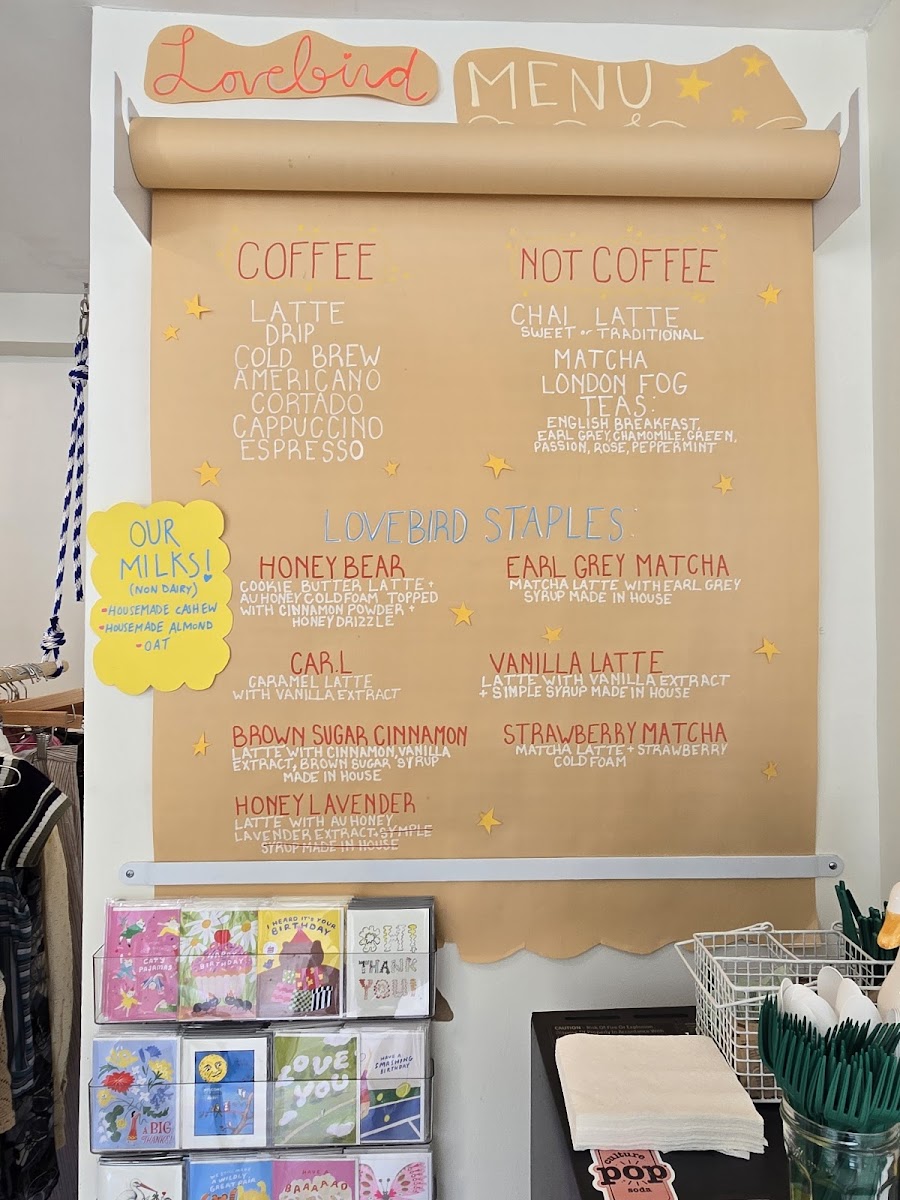 Lovebird
MENU
COFFEE
LATTE
DRIP
COLD BREW
AMERICANO
CORTADO
CAPPUCCINO
ESPRESSO
NOT COFFEE
CHAI LATTE
SWEET or TRADITIONAL
MATCHA
LONDON FOG
TEAS:
ENGLISH BREAKFAST,
EARL GREY, CHAMOMILE, GREEN,
PASSION, ROSE, PEPPERMINT
OUR
MILKS!
(NON DAIRY)
-HOUSEMADE CASHEW
-HOUSEMADE ALMOND
-OAT
LOVEBIRD STAPLES:
HONEY BEAR
COOKIE BUTTER LATTE +
AU HONEY COLD FOAM TOPPED
WITH CINNAMON POWDER +
HONEY DRIZZLE
CAR.L
CARAMEL LATTE
WITH VANILLA EXTRACT
BROWN SUGAR CINNAMON
LATTE WITH CINNAMON, VANILLA
EXTRACT, BROWN SUGAR SYRUP
MADE IN HOUSE
HONEY LAVENDER
LATTE WITH AU HONEY
LAVENDER EXTRACT + SYMPLE
SYRUP MADE IN HOUSE
EARL GREY MATCHA
MATCHA LATTE WITH EARL GREY
SYRUP MADE IN HOUSE
VANILLA LATTE
LATTE WITH VANILLA EXTRACT
+ SIMPLE SYRUP MADE IN HOUSE
STRAWBERRY MATCHA
MATCHA LATTE + STRAWBERRY
COLD FOAM
CAT'S
PAJAMAS
HAPPY
BIRTHDAY
I HEARD IT'S YOUR
BIRTHDAY
OH!
THANK
YOU!
A BIG
THANKS!
LOVE
YOU
HAVE A
SMASHING
BIRTHDAY
HAVE A
CAUTION
culture
pop
soda